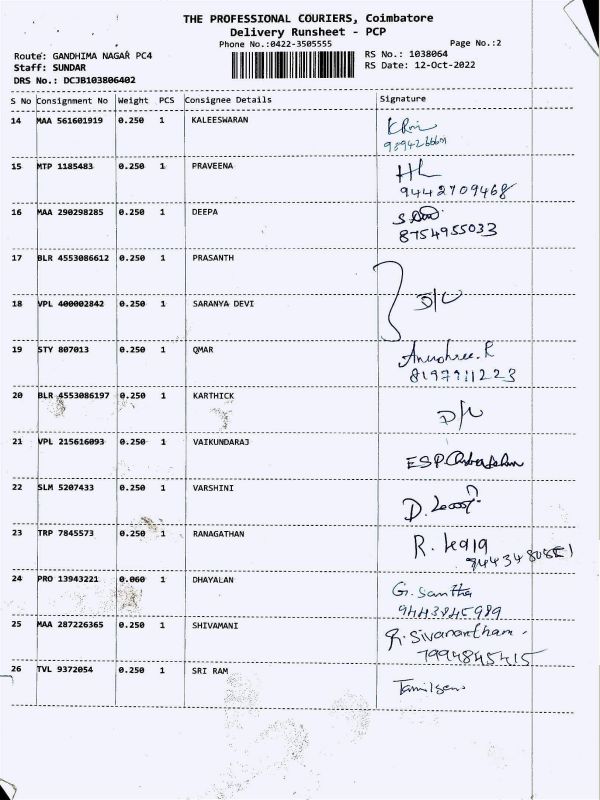 THE PROFESSIONAL COURIERS, Coimbatore
Delivery Runsheet - PCP
Phone No.:0422-3505555
Page No.:2
Route: GANDHIMA NAGAR PC4
RS No.: 1038064
Staff: SUNDAR
RS Date: 12-Oct-2022
DRS No.: DCJB103806402
S No Consignment No Weight PCS Consignee Details Signature
14 MAA 561601919 0.250 1 KALEESWARAN
15 MTP 1185483 0.250 1 PRAVEENA
9442709468
16 MAA 290298285 0.250 1 DEEPA
8754955033
17 BLR 4553086612 0.250 1 PRASANTH
18 VPL 400002842 0.250 1 SARANYA DEVI D/L
19 STY 807013 0.250 1 QMAR Anushree.R
8197911223
20 BLR 4553086197 0.250 1 KARTHICK D/L
21 VPL 215616093 0.250 1 VAIKUNDARAJ ESP
22 SLM 5207433 0.250 1 VARSHINI D.
23 TRP 7845573 0.250 1 RANAGATHAN R.
24 PRO 13943221 0.060 1 DHAYALAN G. Santha
9443845989
25 MAA 287226365 0.250 1 SHIVAMANI R. Sivanantham.
7994845415
26 TVL 9372054 0.250 1 SRI RAM